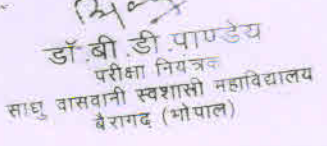 डॉ.बी.डी.पाण्डेय
परीक्षा नियंत्रक
साधु वासवानी स्वशासी महाविद्यालय
बैरागढ (भोपाल)